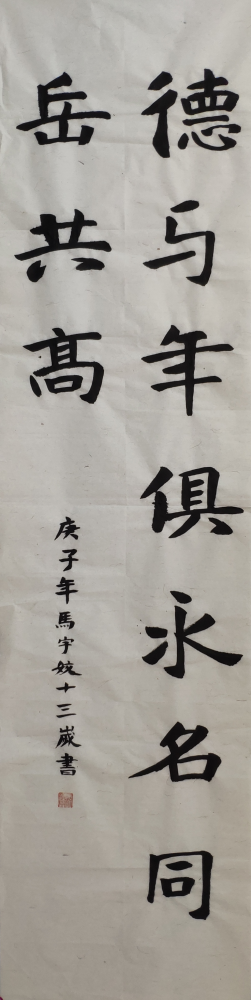 德与年俱永名同
岳共高
庚子年馬宇姣十三歲書